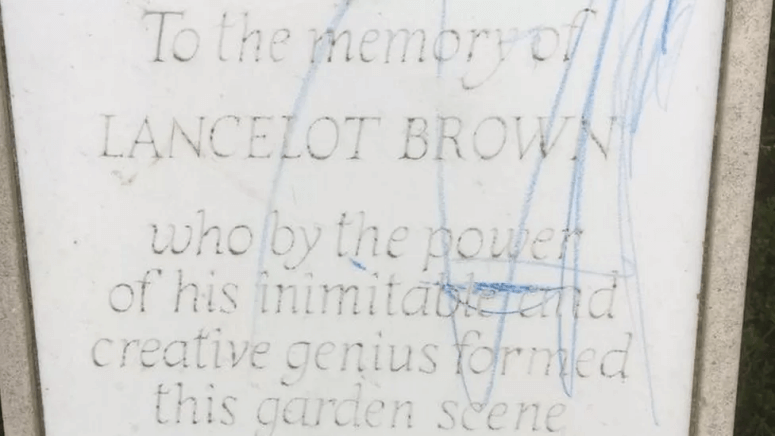 To the memory of
LANCELOT BROWN
who by the power
of his inimitable and
creative genius formed
this garden scene